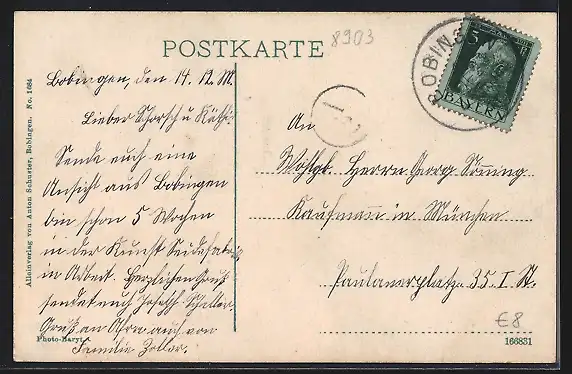 POSTKARTE
8903
BOBING
5
BAYERN
Bobingen, den 14. 12. 11.
Lieber Schorsch u Käthi.
Sende euch eine
Ansicht aus Bobingen
bin schon 5 Wochen
in der Kunst Seidefabrik
in Arbeit. Herzlichen Gruß
sendet euch Joseph
Gruß an auch von
Familie Zoller.
An
Wohlgb. Herrn Georg
Kaufmann in München
Paulanerplatz 35. I St.
Alleinverlag von Anton Schuster, Bobingen. No. 1684
Photo-Baryt.
€8
166831